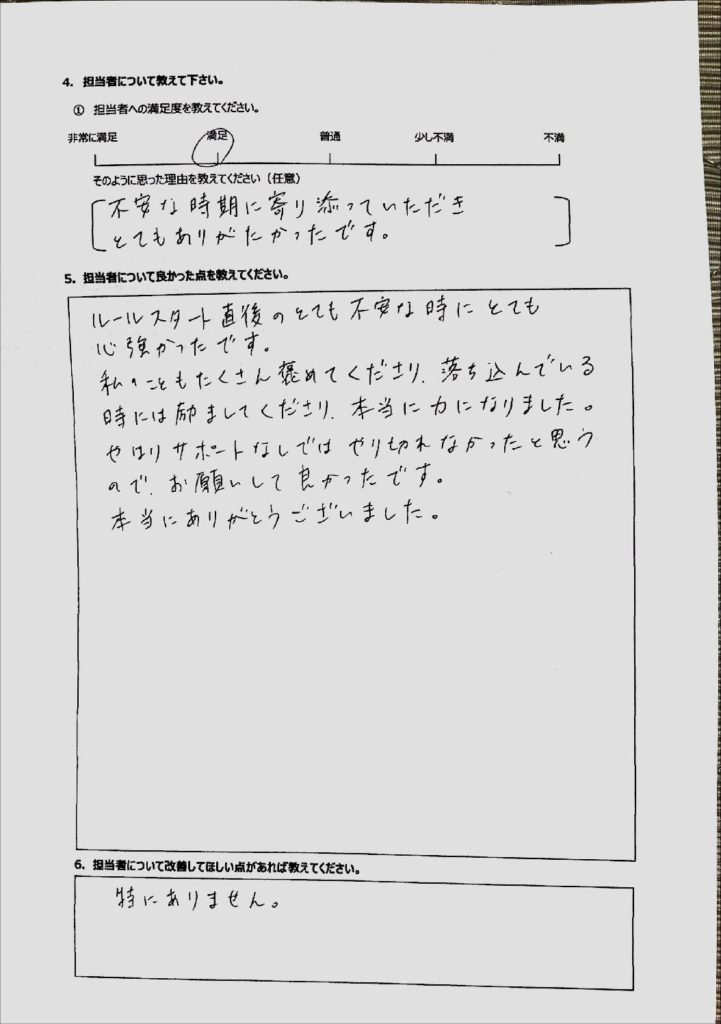 4. 担当者について教えて下さい。
① 担当者への満足度を教えてください。
非常に満足 満足 普通 少し不満 不満
そのように思った理由を教えてください（任意）
不安な時期に寄り添っていただき
とてもありがたかったです。
5. 担当者について良かった点を教えてください。
ルールスタート直後のとても不安な時にとても
心強かったです。
私のこともたくさん褒めてくださり、落ち込んでいる
時には励ましてくださり、本当に力になりました。
やはりサポートなしではやり切れなかったと思う
ので、お願いして良かったです。
本当にありがとうございました。
6. 担当者について改善してほしい点があれば教えてください。
特にありません。